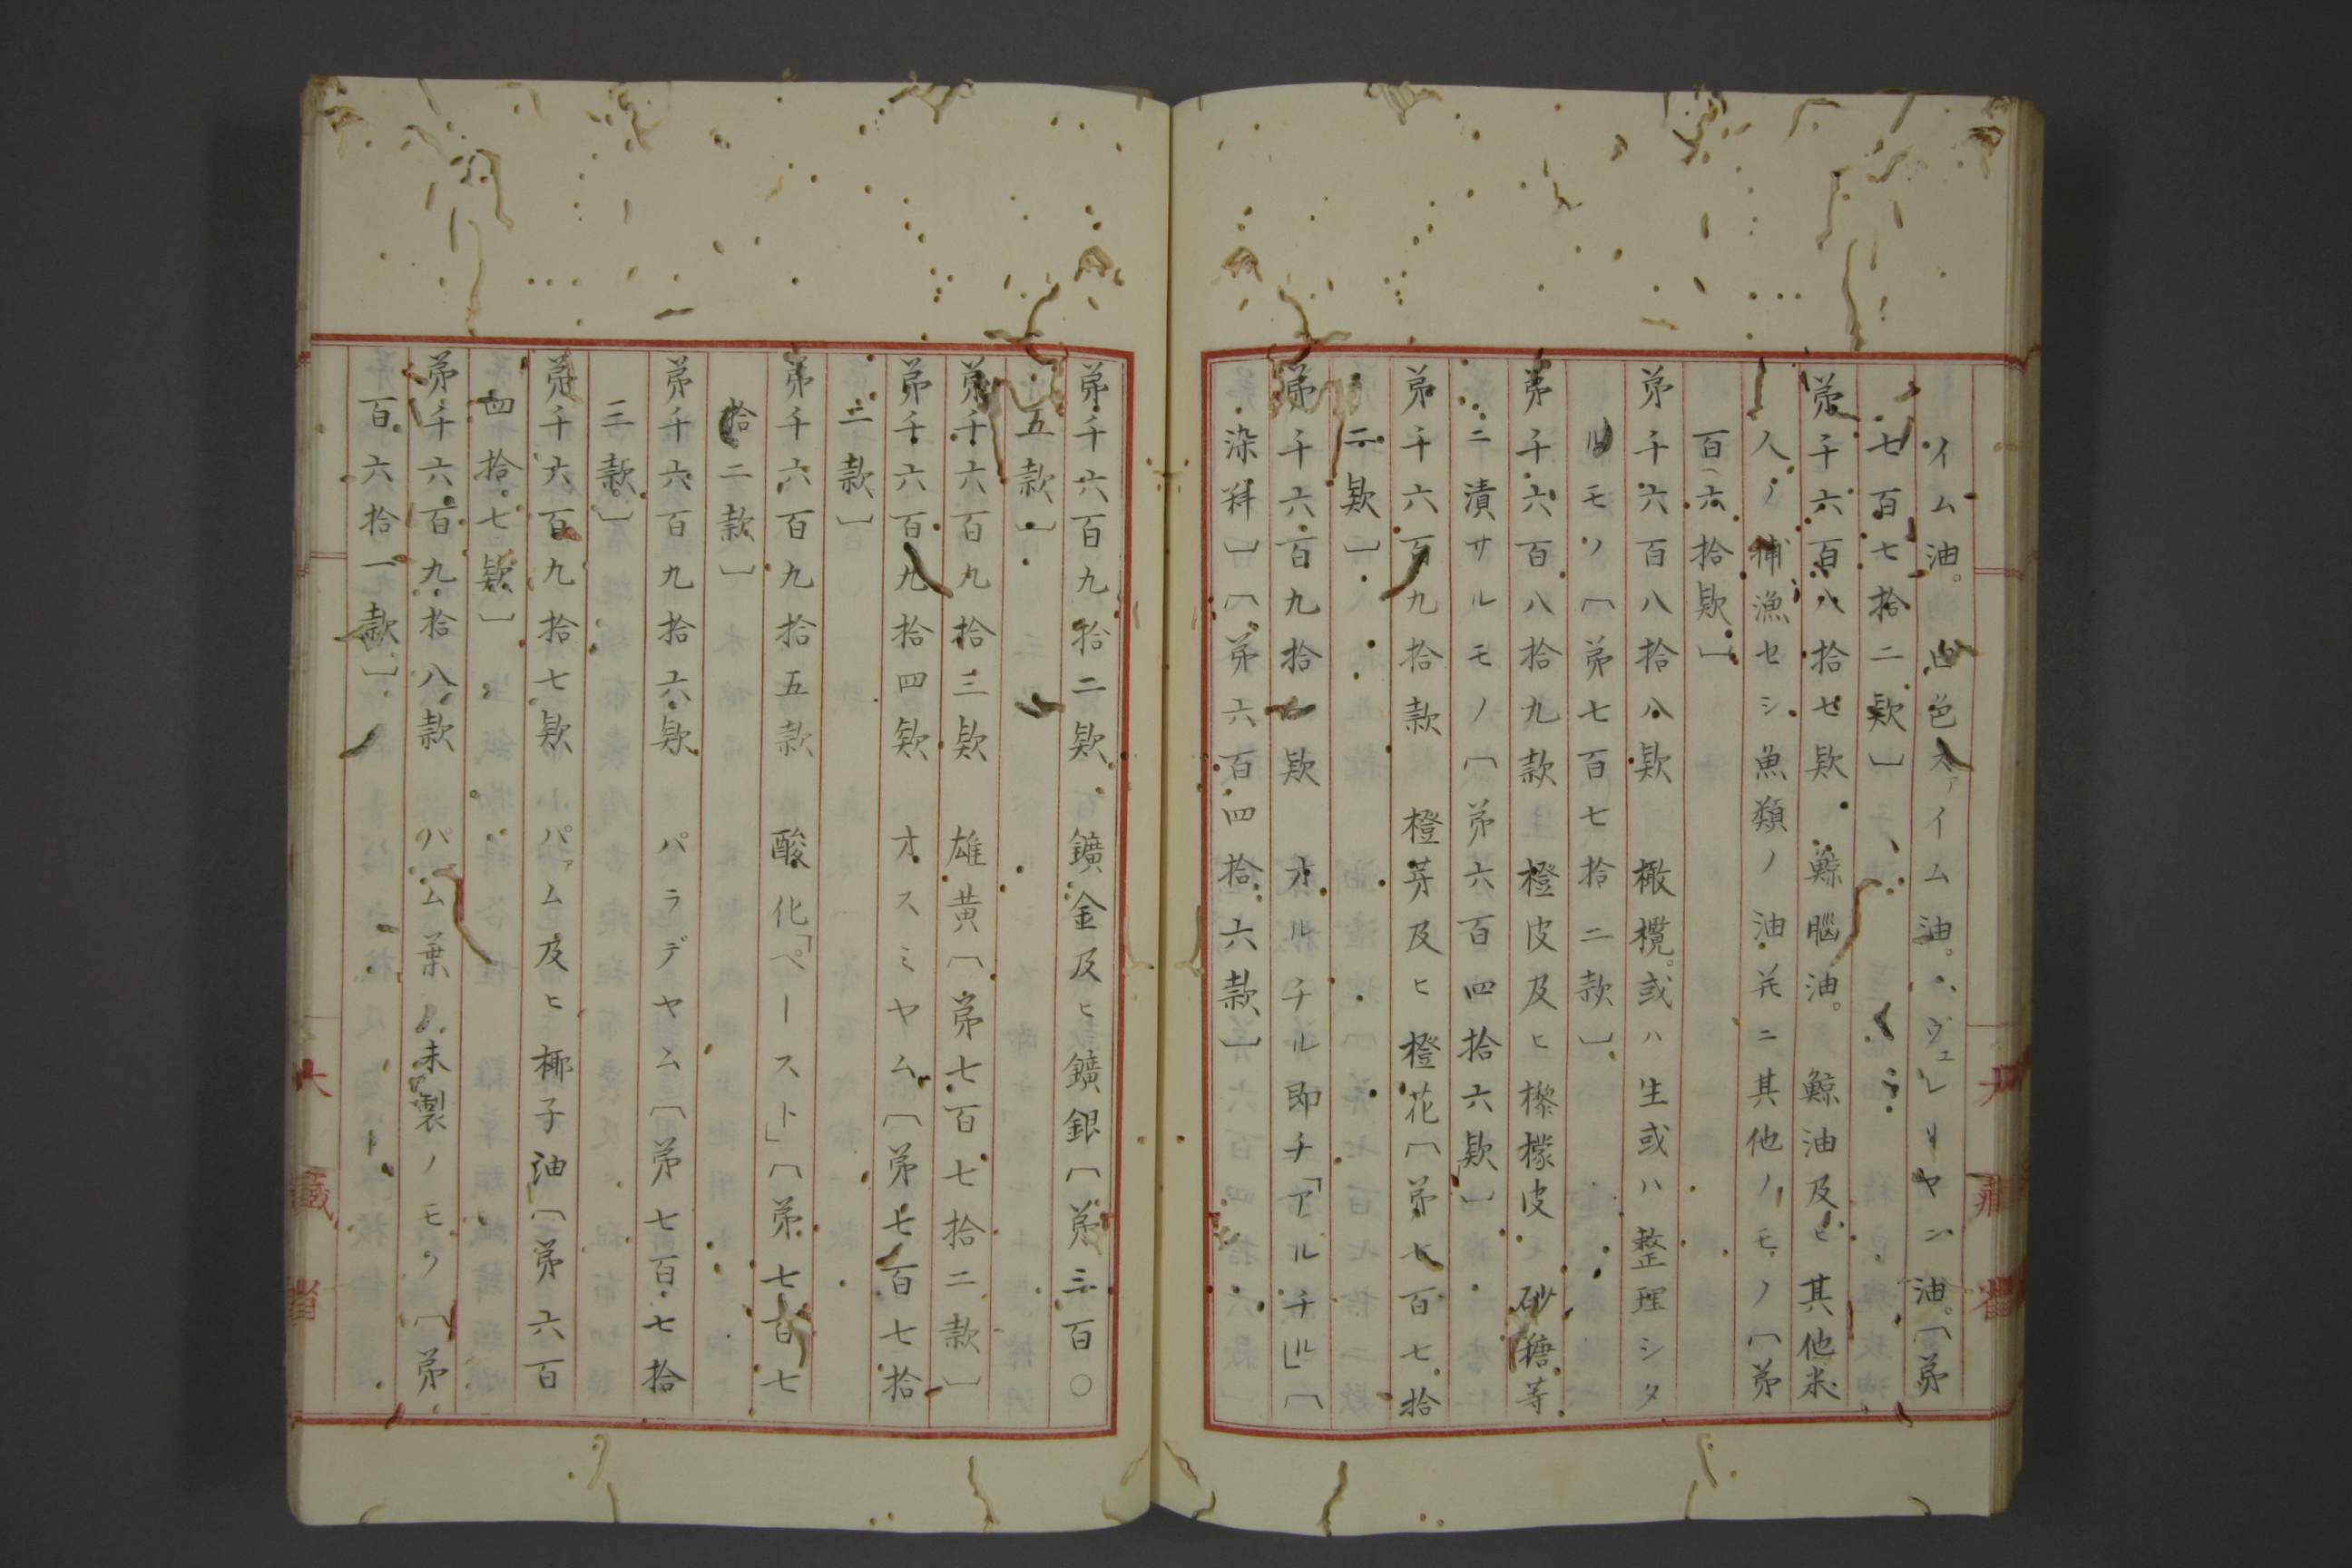 イム油。凸色タァイム油。ヴェレリヤン油。〔第
七百七拾二款〕
第千六百八拾七款　鯨腦油。鯨油及ヒ其他米
人ノ捕漁セシ魚類ノ油并ニ其他ノモノ〔第
百六拾款〕
第千六百八拾八款　橄欖。或ハ生或ハ整理シタ
ルモノ〔第七百七拾二款〕
第千六百八拾九款　橙皮及ヒ檸檬皮　砂糖等
ニ漬サルモノ〔第六百四拾六款〕
第千六百九拾款　橙芽及ヒ橙花〔第七百七拾
二款〕
第千六百九拾一款　オルチル即チ「アルチル」〔
染料〕〔第六百四拾六款〕
第千六百九拾二款　鑛金及ヒ鑛銀〔第三百〇
五款〕
第千六百九拾三款　雄黄〔第七百七拾二款〕
第千六百九拾四款　オスミヤム〔第七百七拾
二款〕
第千六百九拾五款　酸化「ペースト」〔第七百七
拾二款〕
第千六百九拾六款　パラデヤム〔第七百七拾
三款〕
第千六百九拾七款　パァム及ヒ椰子油〔第六百
四拾七款〕
第千六百九拾八款　パム葉　未製ノモノ〔第
百六拾一款〕
大藏省
大藏省